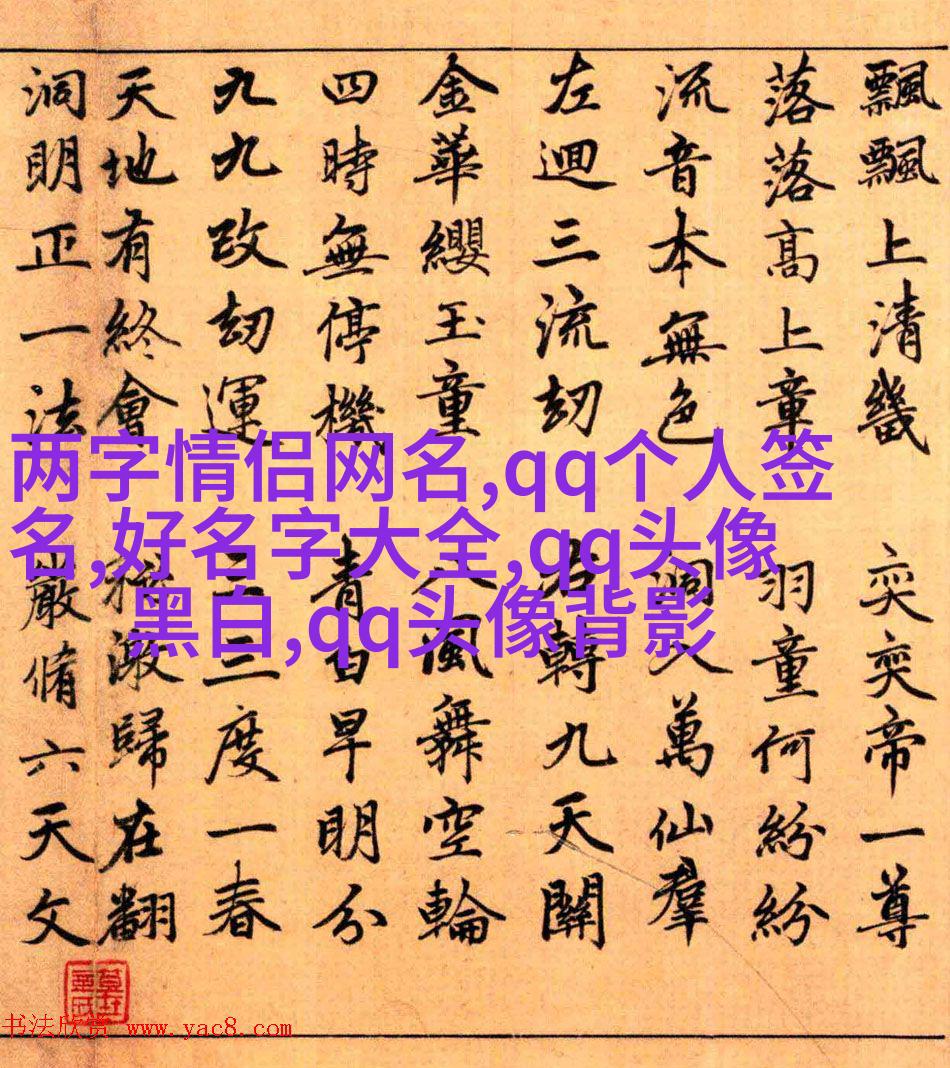 飄飄上清畿 奕奕帝一尊
落落高上 羽童何紛紛
流音本無色 入萬仙羣
左迴三流劫 右轉九天關
金華纓玉童 八風舞空輪
四時無停機 青白早明分
九九改劫運 三三度一春
天地有終會 歸在翻
洞明正一法 嚴脩六天文
两字情侣网名,qq个人签
名,好名字大全,qq头像
黑白,qq头像背影
书法欣赏 www.yac8.com